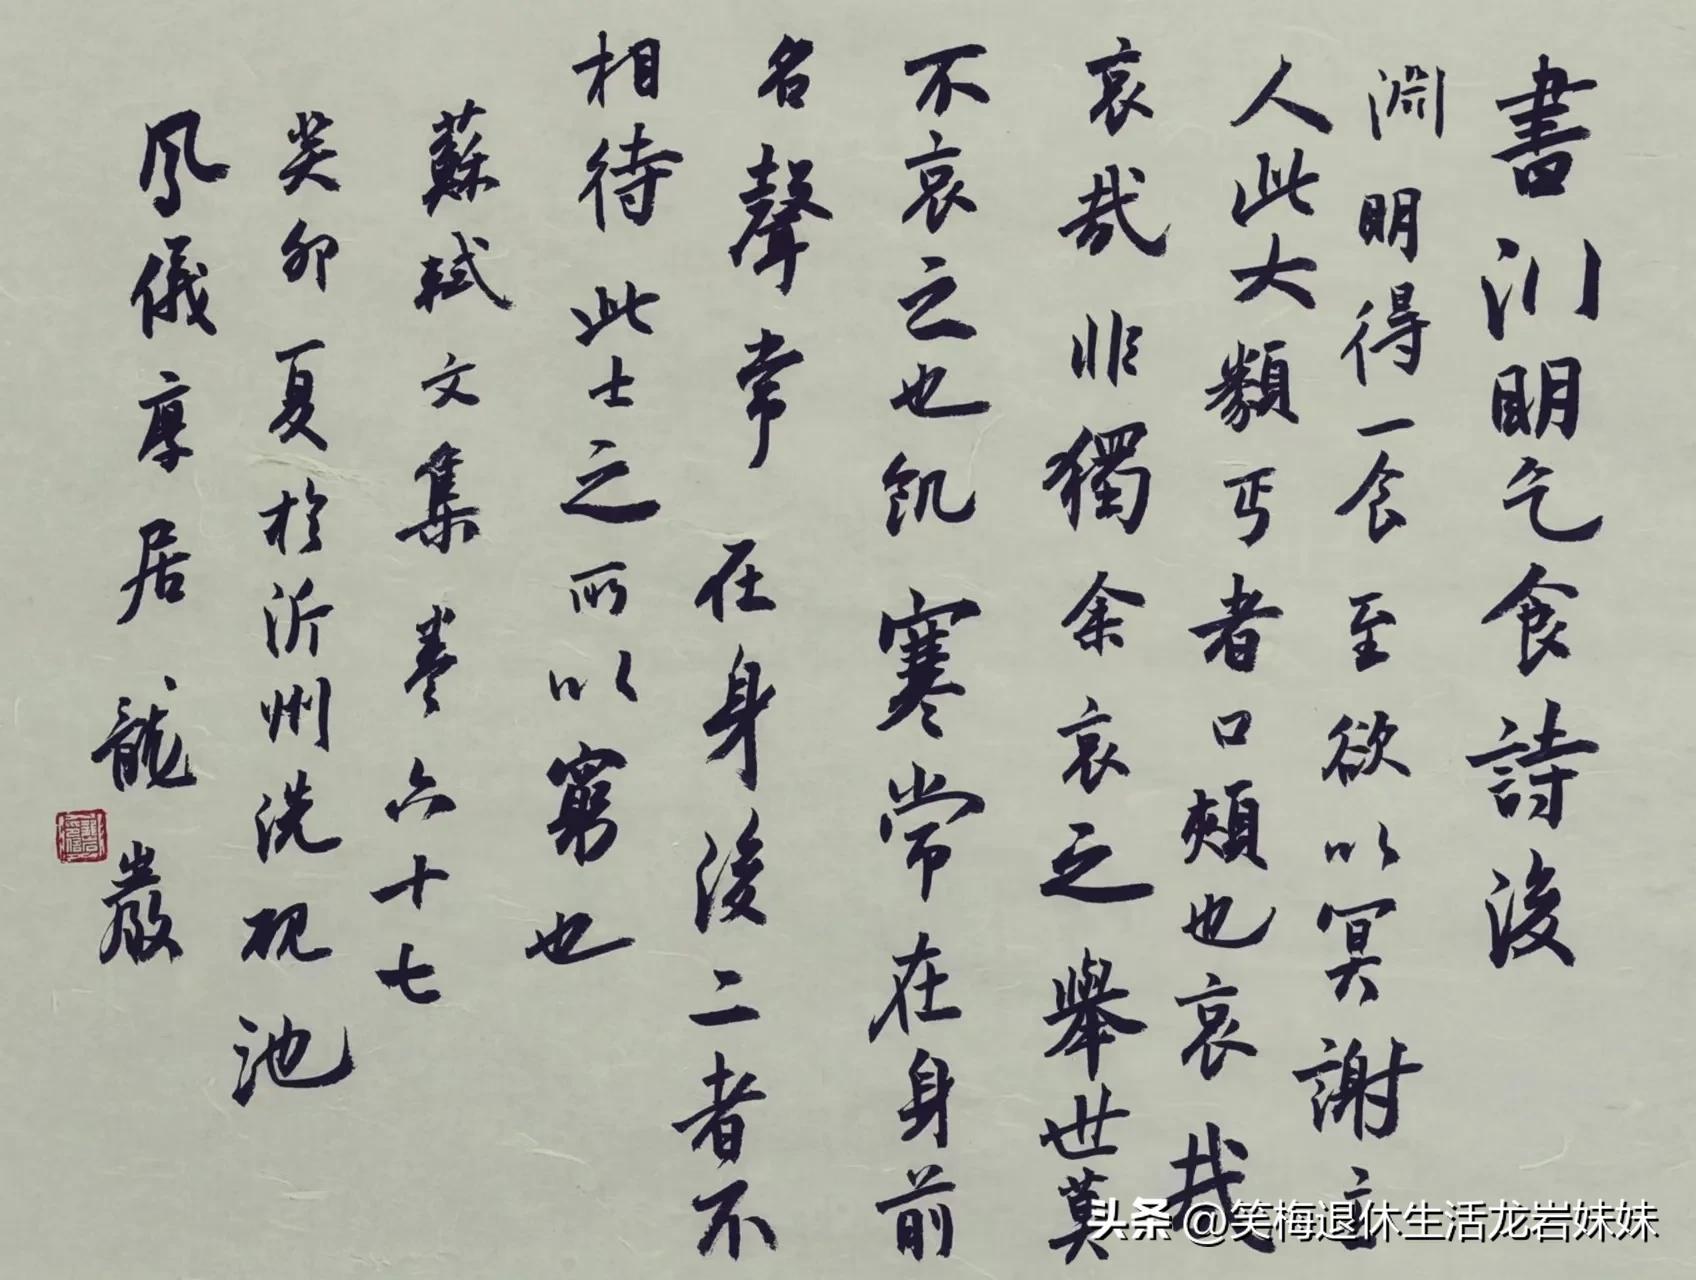 書淵明乞食詩後
淵明得一食至欲以冥謝主
人此大類丐者口頰也哀哉
哀哉非獨余哀之舉世莫
不哀之也飢寒常在身前
名聲常在身後二者不
相待此士之所以窮也
蘇軾文集卷六十七
癸卯夏於沂州洗硯池
鳳儀居龍巖
头条 @笑梅退休生活龙岩妹妹